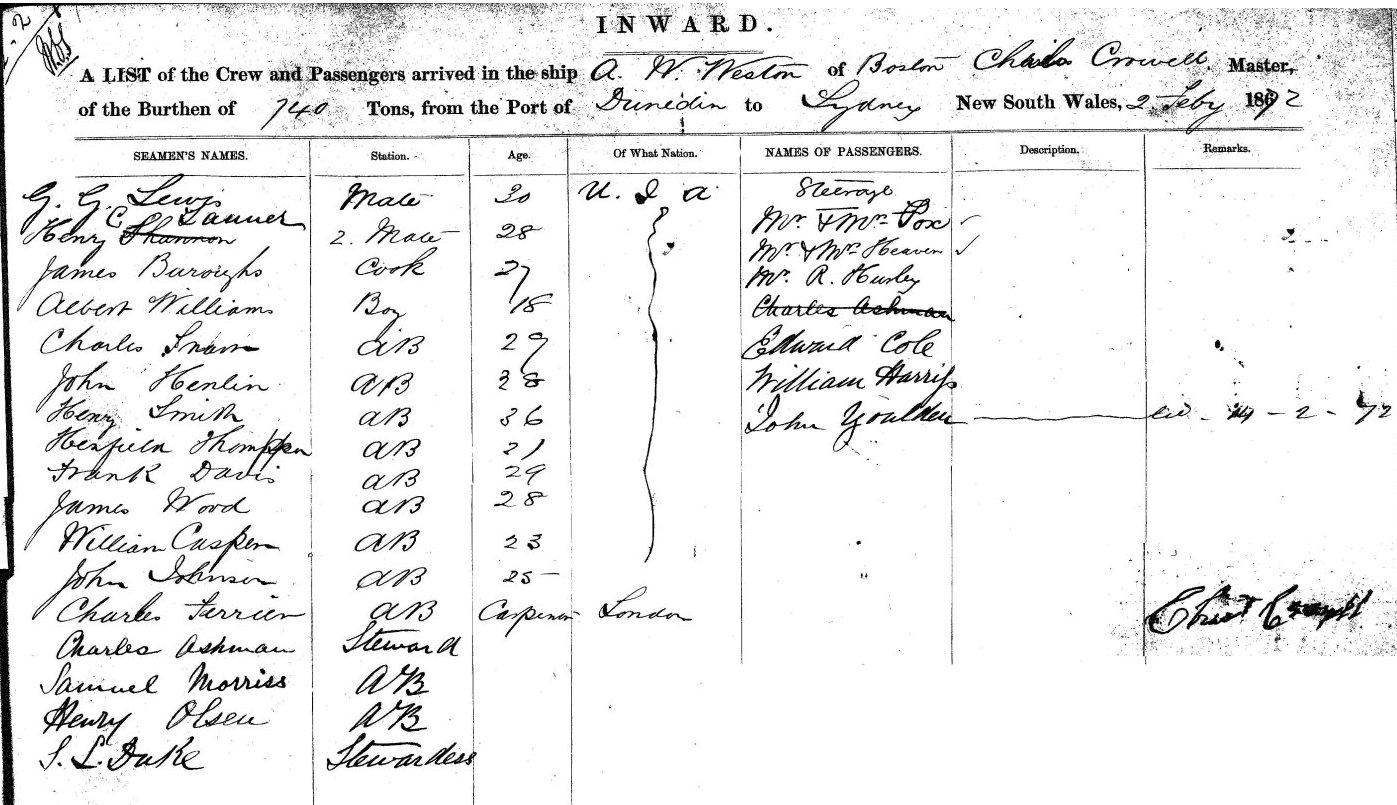 INWARD.
A LIST of the Crew and Passengers arrived in the ship A. W. Weston of Boston Crowell, Master,
of the Burthen of 740 Tons, from the Port of Dunedin to Sydney New South Wales, 2 Feby 1872
SEAMEN'S NAMES. Station. Age. Of What Nation. NAMES OF PASSENGERS. Description. Remarks.
G. G. Lewis Mate 30 U. S. A. Steerage
Henry C. Shannon Lanner 2. Mate 28 Mr. & Mrs. Fox ✓
James Buroughs Cook 27 Mr & Mrs Heaven ✓
Albert Williams Boy 18 Mr. R. Hurley
Charles AB 29 Charles Ashman
John Henlin AB 28 Edward Cole
Henry Smith AB 36 William Harriss
Thompson AB 21 John Youlden - 2 - 72
Frank Davis AB 29
James Wood AB 28
William Caspen AB 23
John Johnson AB 25
Charles Ferrien AB Carpenter London
Charles Ashman Steward
Samuel Morriss AB
Henry Olsen AB
S. L. Duke Stewardess